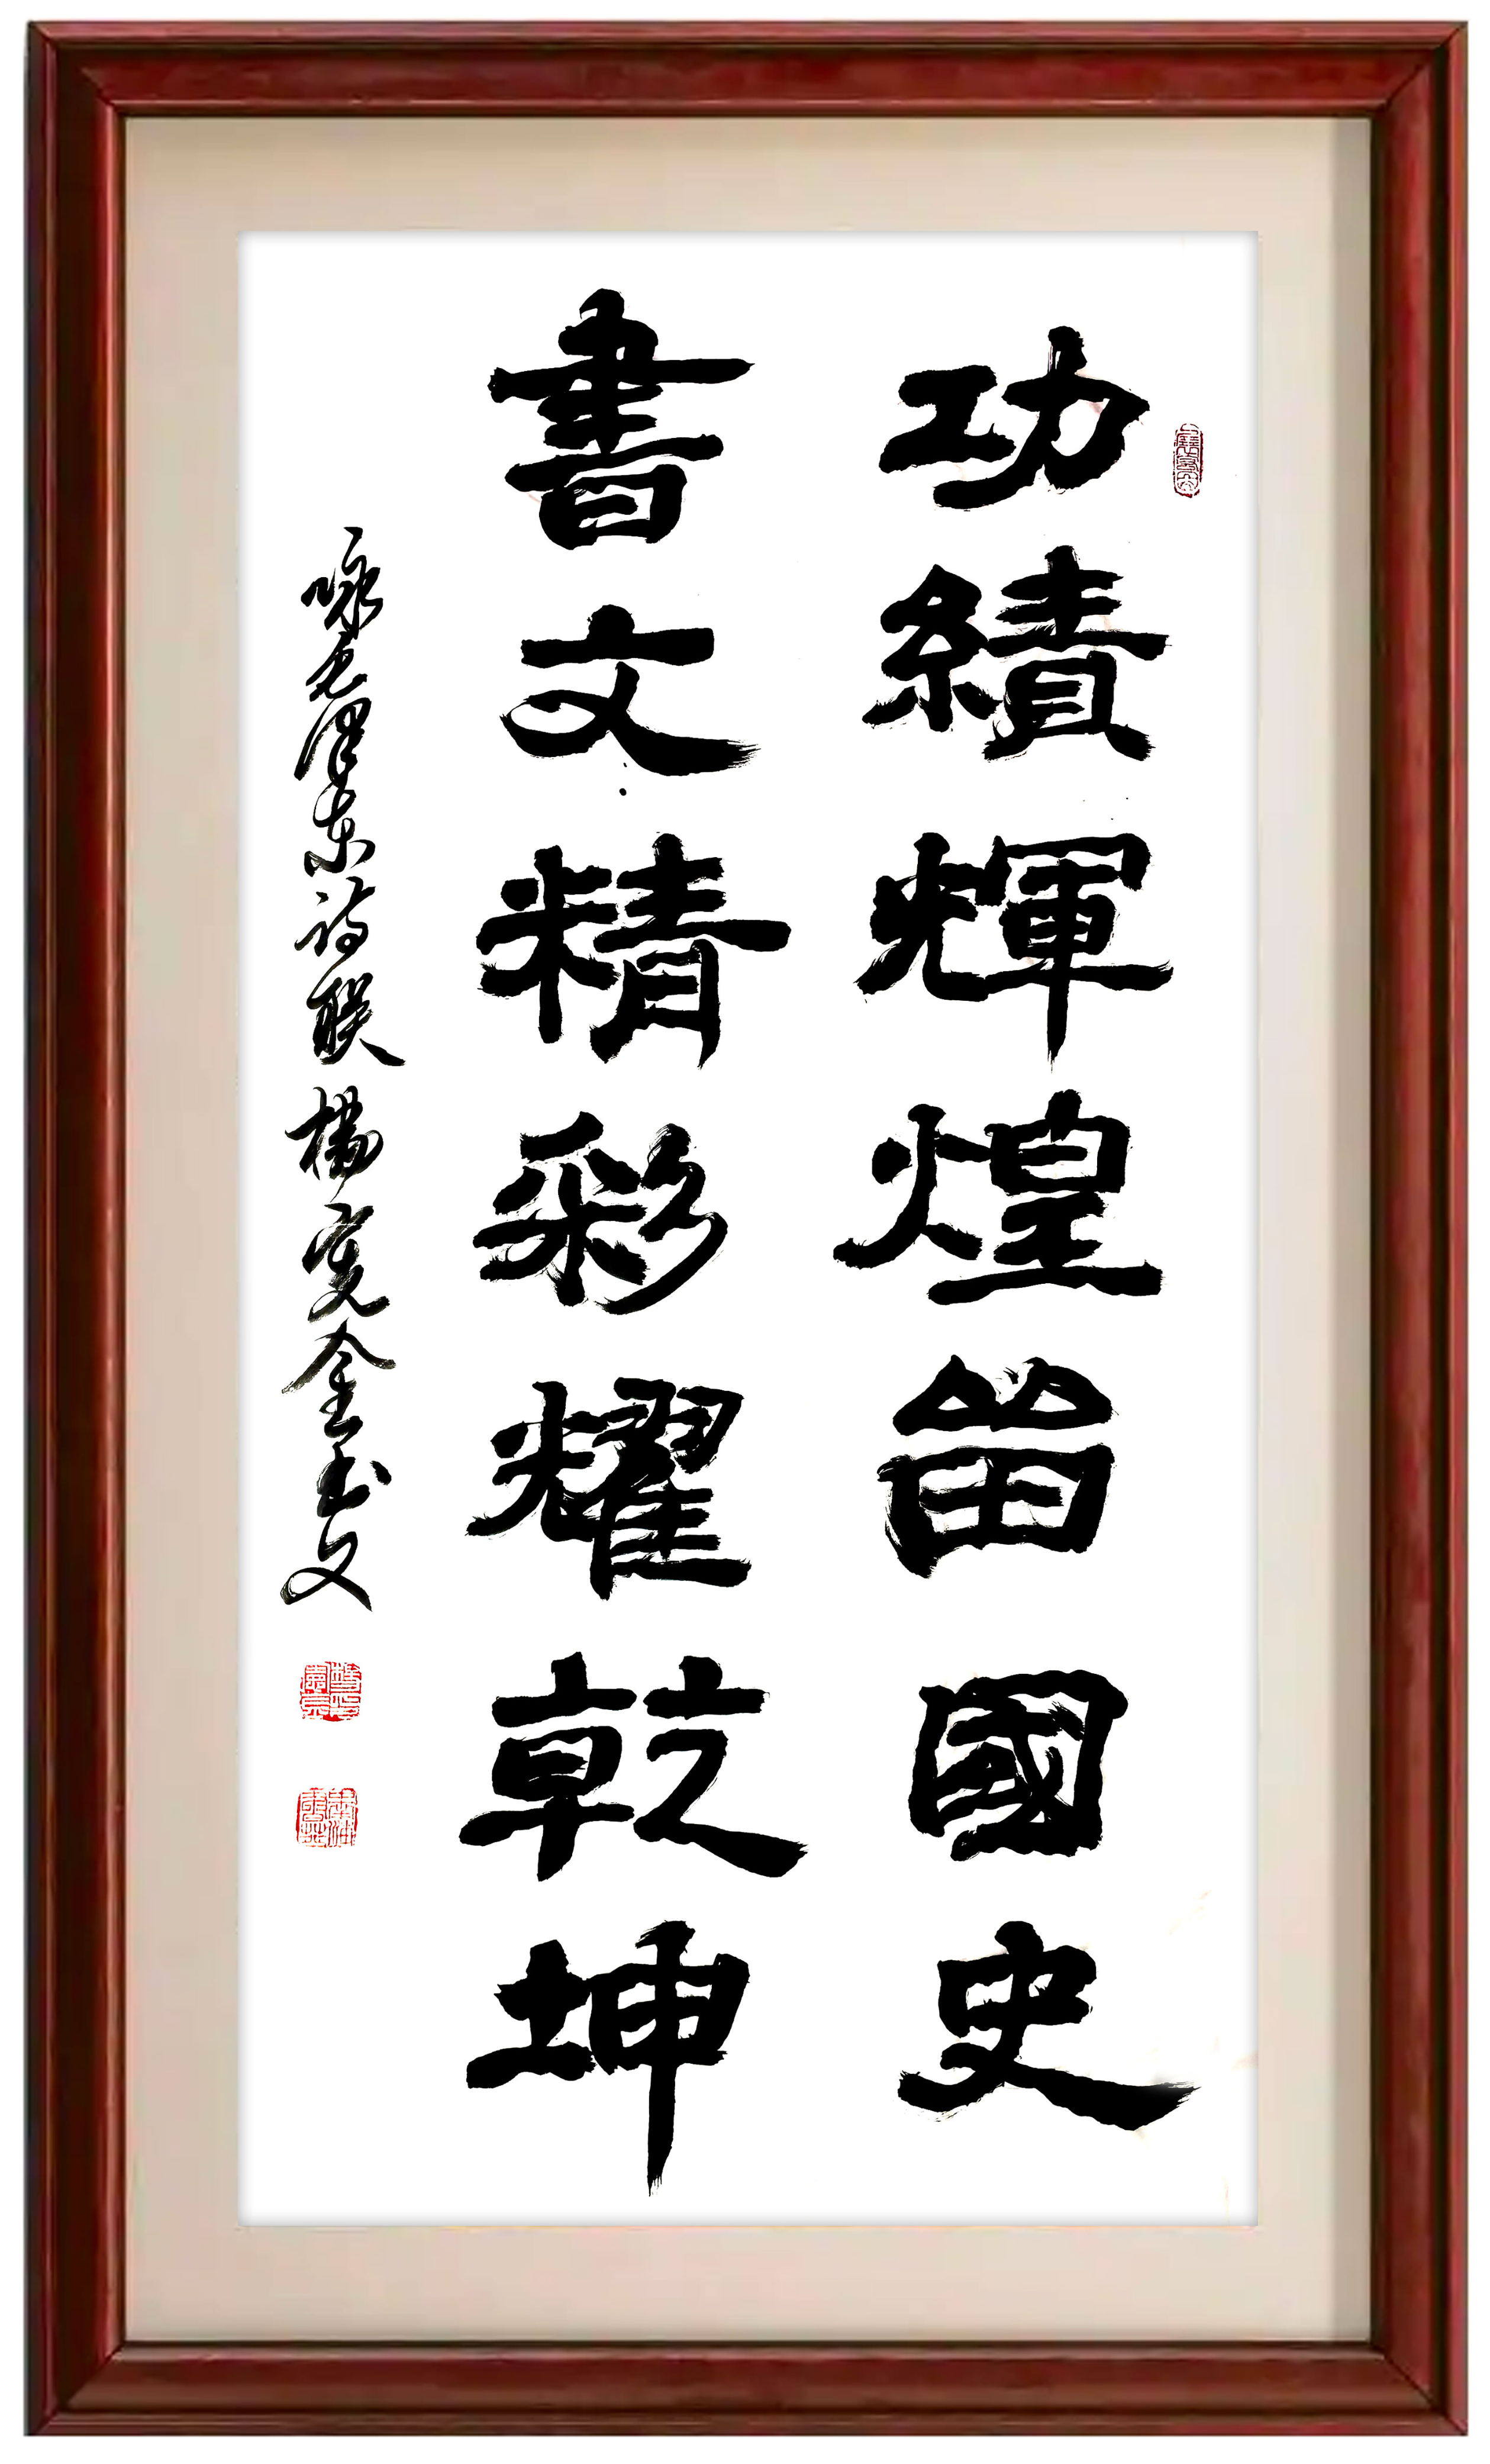 功績輝煌留國史
書文精彩耀乾坤
咏毛澤東詩联 楊憲金书文